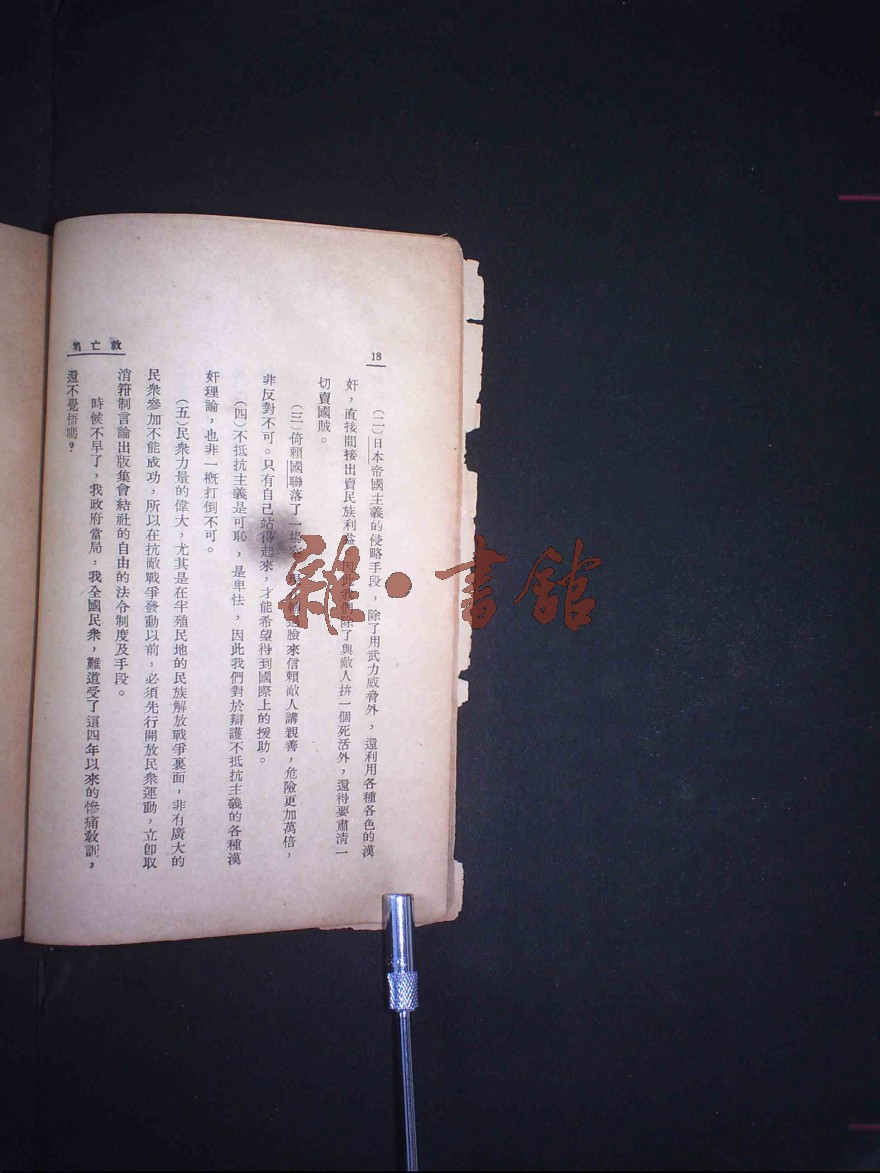 18
(二)日本帝國主義的侵略手段,除了用武力威脅外,還利用各種各色的漢
奸,直接間接出賣民族利益,因此我們除了與敵人拚一個死活外,還得要肅清一
切賣國賊。
(三)倚賴國聯落了一場空,臉來信賴敵人講親善,危險更加萬倍,
非反對不可。只有自己站得起來,才能希望得到國際上的援助。
(四)不抵抗主義是可恥,是卑怯,因此我們對於辯護不抵抗主義的各種漢
奸理論,也非一概打倒不可。
(五)民衆力量的偉大,尤其是在半殖民地的民族解放戰爭裏面,非有廣大的
民衆參加不能成功,所以在抗敵戰爭發動以前,必須先行開放民衆運動,立卽取
消箝制言論出版集會結社的自由的法令制度及手段。
時候不早了,我政府當局,我全國民衆,難道受了這四年以來的慘痛教訓,
還不覺悟嗎?
救亡
雜·書館